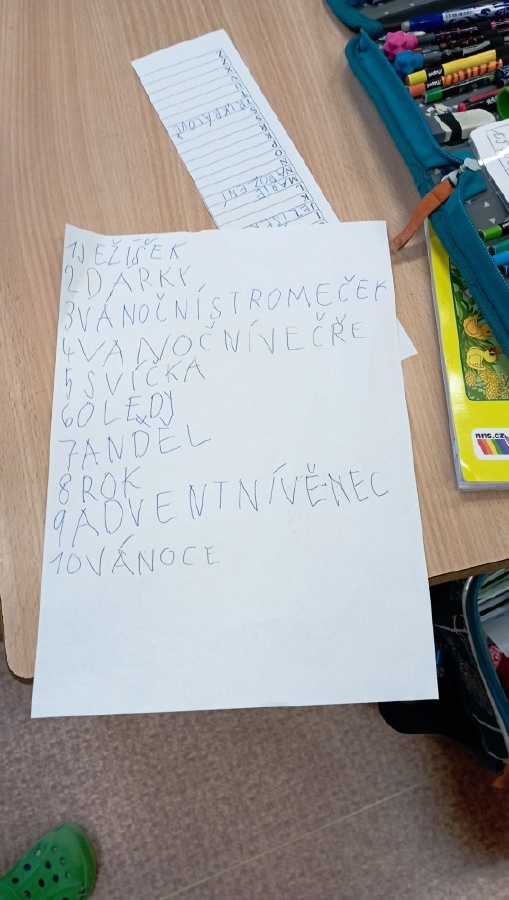 1JEŽÍŠEK
2DARKY
3VÁNOČNÍSTROMEČEK
4VANOČNÍVEČŘE
5SVÍČKA
6OLEDJ
7ANDĚL
8ROK
9ADVENTNÍVĚNEC
10VÁNOCE
TŘIKRÁLOVÉ
MARIE
nns.cz